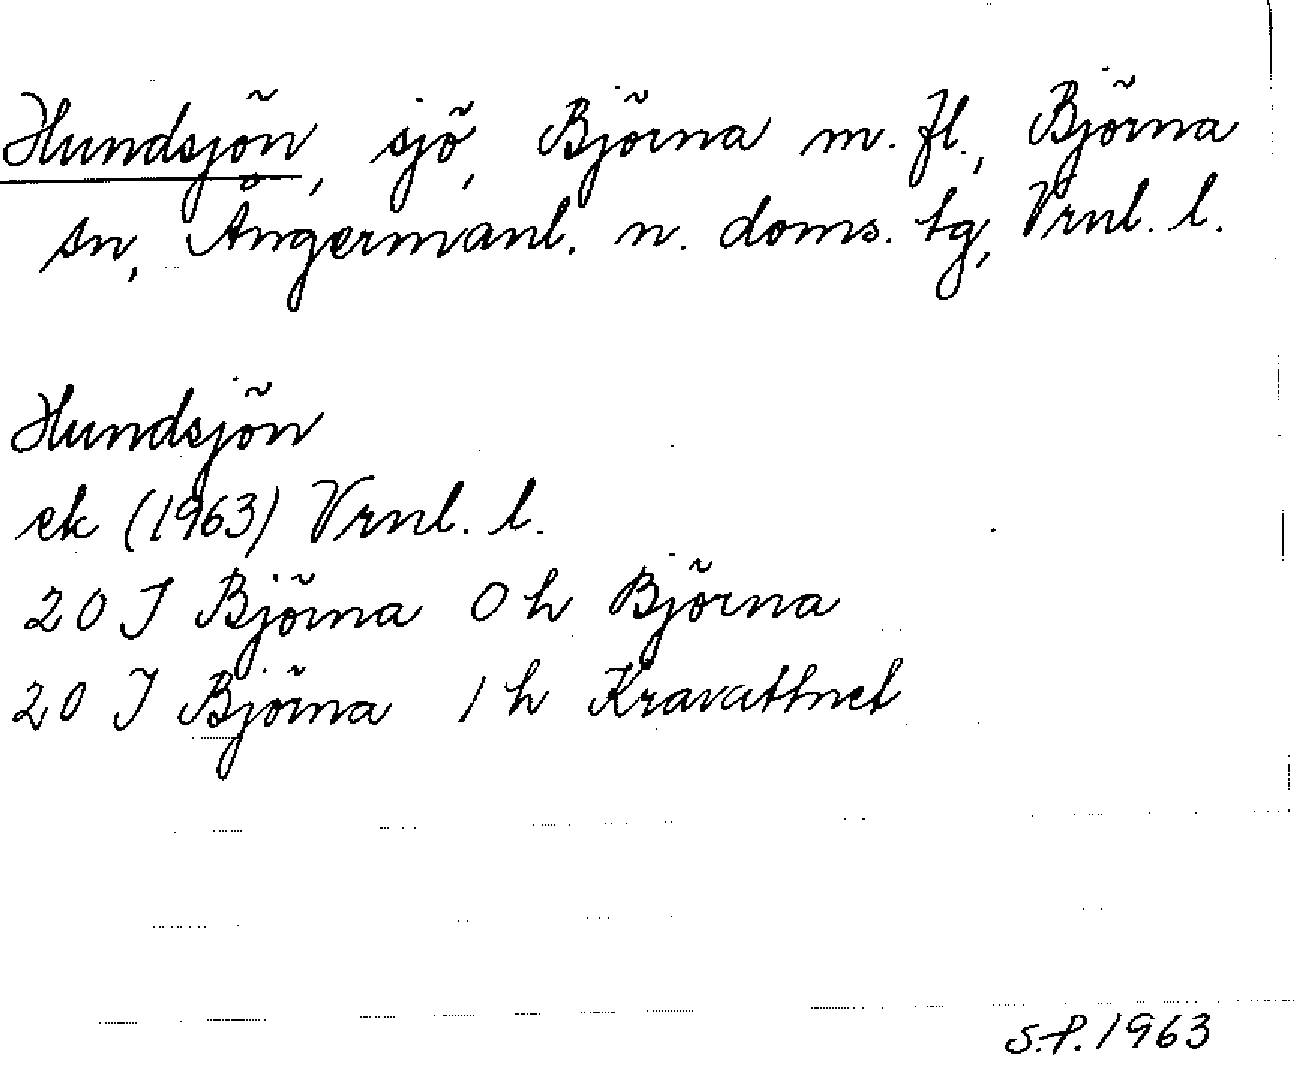 Hundsjön, sjö, Björna m. fl., Björna
sn, Ångermanl. n. doms. tg, Vrnl. l.
Hundsjön
ek (1963) Vrnl. l.
20 J Björna 0 h Björna
20 J Björna 1 h Kravattnet
S.P. 1963